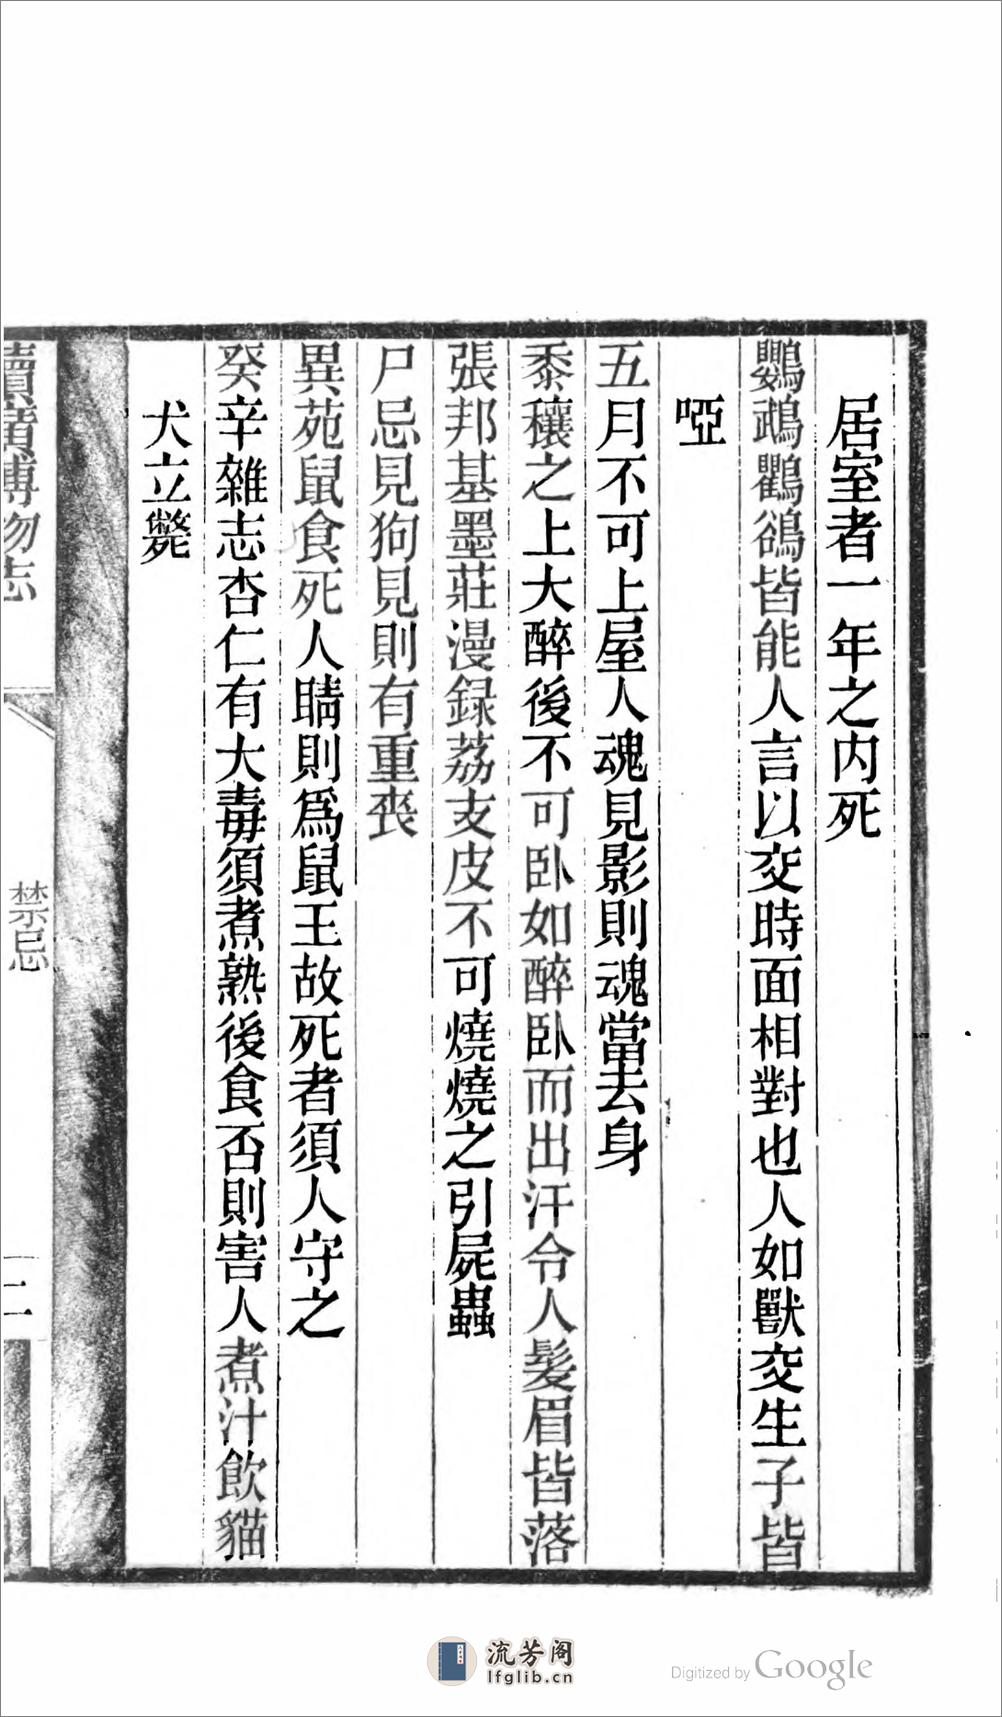 居室者一年之内死
鸚鵡鸜鵒皆能人言以交時面相對也人如獸交生子皆
啞
五月不可上屋人魂見影則魂當去身
黍穰之上大醉後不可卧如醉卧而出汗令人髮眉皆落
張邦基墨莊漫録荔支皮不可燒燒之引屍蟲
尸忌見狗見則有重喪
異苑鼠食死人睛則爲鼠王故死者須人守之
癸辛雜志杏仁有大毒須煮熟後食否則害人煮汁飲貓
犬立斃
續博物志
禁忌
二
流芳阁
lfglib.cn
Digitized by Google